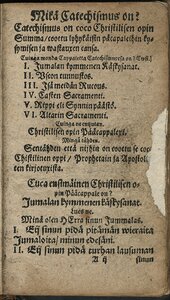 Mikä Catechismus on?
Catechismus on coco Christilisen opin
Summa / coottu lyhykäisin pääcapaleihin ky-
symisen ja wastauxen cansa.
Cuinga monda Cappaletta Catechismuxesa on? Cuusi.
I. Jumalan kymmenen Käskysanat.
II. Uscon tunnustos.
III. Isä meidän Rucous.
IV. Casten Sacramenti.
V. Rippi eli Synnin päästö.
VI. Altarin Sacramenti.
Cuinga ne cutzutan.
Christilisen opin Pääcappalexi.
Mingä tähden.
Sentähden että nijhin on coottu se coco
Christillinen oppi / Prophetain ja Apostol-
ten kirjotuxista.
Cuca ensimäinen Christilisen o-
pin Pääcappale on?
Jumalan kymmenen käskysanat.
Lues ne.
Minä olen HErra sinun Jummalas.
I. Ei sinun pidä pitämän wieraita
Jumaloita minun edesäni.
II. Ei sinun pidä turhan lausuman
A ij sinun